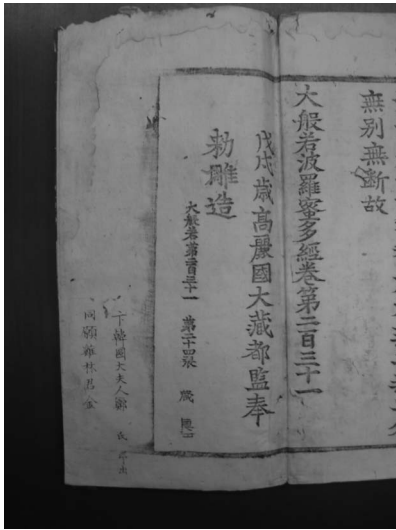 無別無斷故
大般若波羅蜜多經卷第二百三十一
戊戌歲高麗國大藏都監奉
勅雕造
大般若第二百三十一 第二十四張
卞韓國大夫人鄭
同願